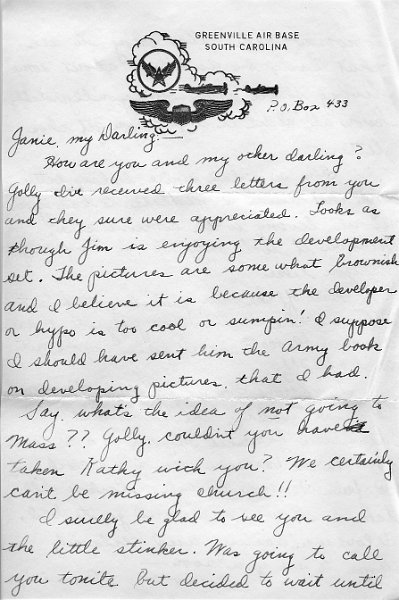 GREENVILLE AIR BASE
SOUTH CAROLINA
P.O. Box 433
Janie, my Darling,
How are you and my other darling?
Golly I've received three letters from you
and they sure were appreciated. Looks as
though Jim is enjoying the development
set. The pictures are some what brownish
and I believe it is because the developer
or hypo is too cool or sumpin'! I suppose
I should have sent him the Army book
on developing pictures, that I had.
Say, what's the idea of not going to
Mass?? Golly, couldn't you have
taken Kathy with you? We certainly
can't be missing church!!
I surely be glad to see you and
the little stinker. Was going to call
you tonite but decided to wait until